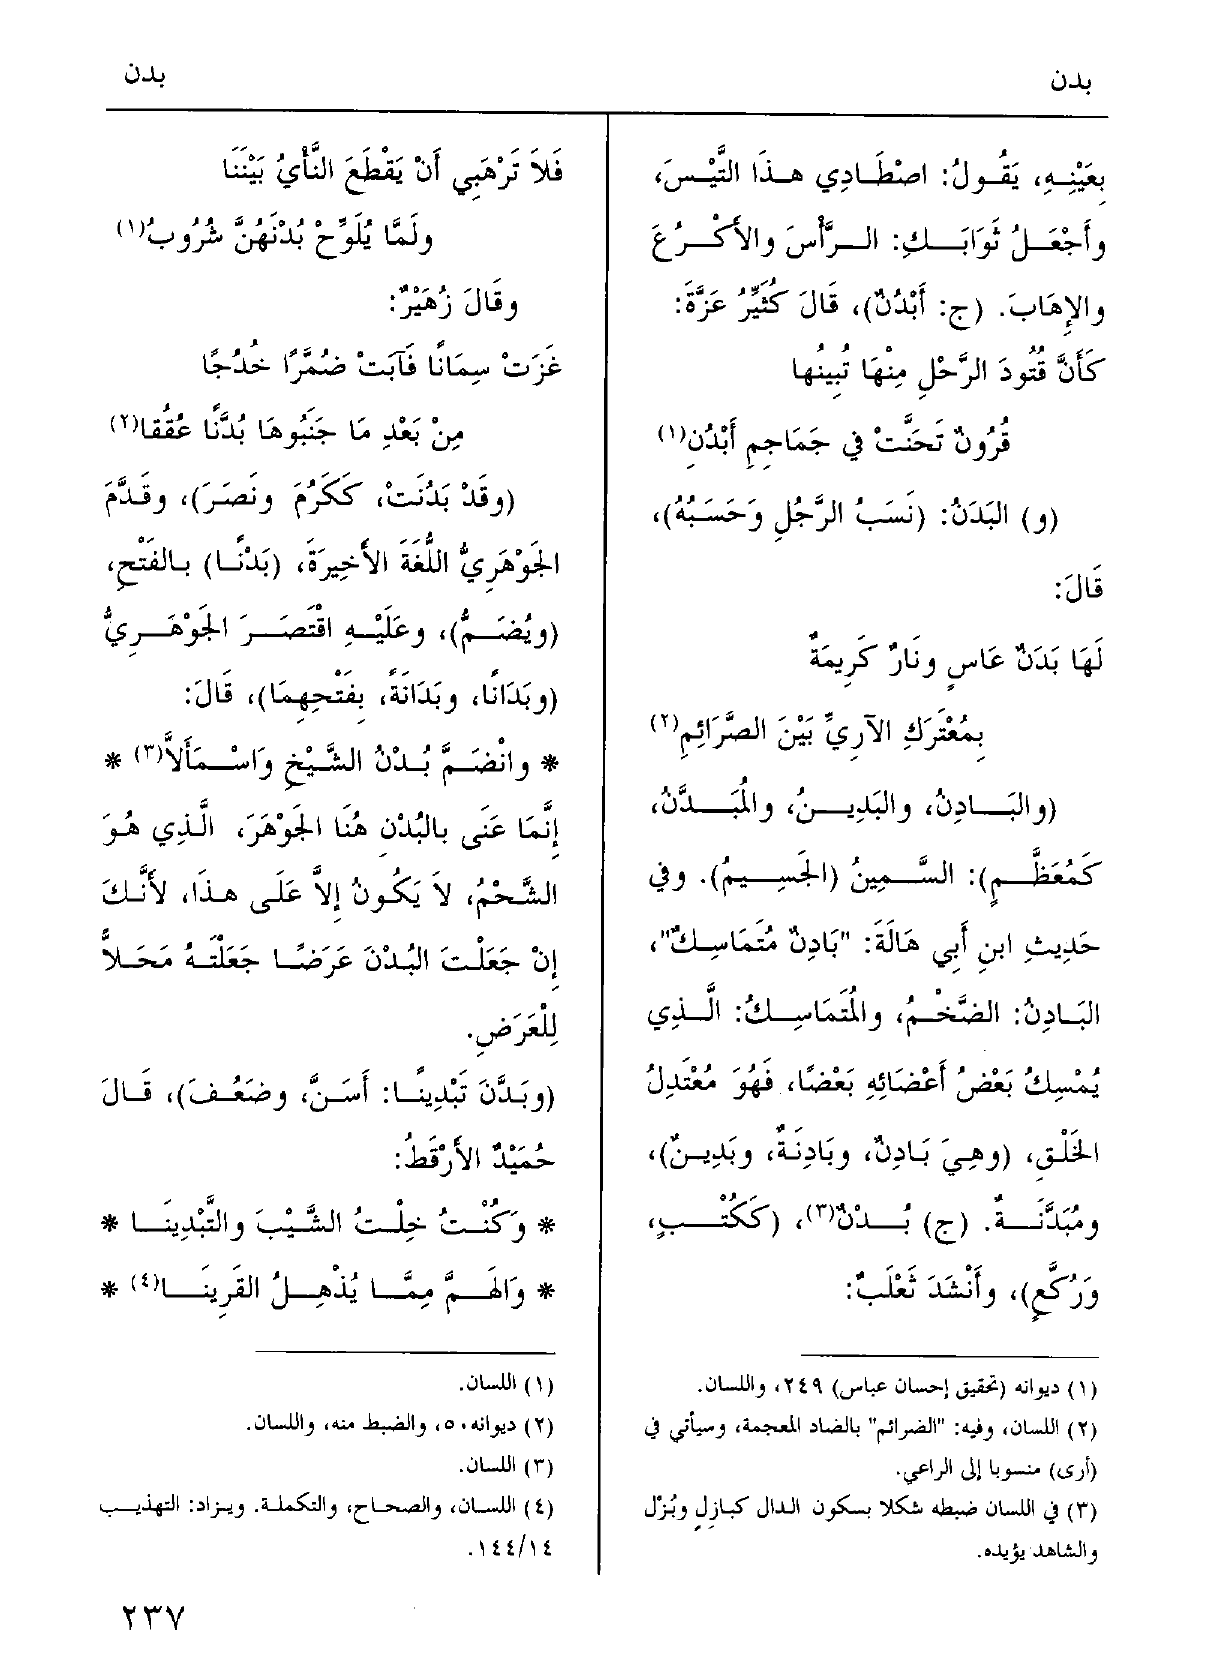 بدن
بدن
بِعَيْنِهِ، يَقُولُ: اصْطَادِي هذَا التَّيْسَ،
وأَجْعَلُ ثَوَابَكِ: الرَّأْسَ والأَكْرُعَ
والإِهَابَ. (ج: أَبْدُنٌ)، قَالَ كُثَيِّرُ عَزَّةَ:
كَأَنَّ قُتُودَ الرَّحْلِ مِنْهَا تُبِينُها
قُرُونٌ تَحَنَّتْ في جَمَاجِمِ أَبْدُنِ(١)
(و) البَدَنُ: (نَسَبُ الرَّجُلِ وَحَسَبُهُ)،
قَالَ:
لَهَا بَدَنٌ عَاسٍ ونَارٌ كَرِيمَةٌ
بِمُعْتَرَكِ الآرِيِّ بَيْنَ الصَّرَائِمِ(٢)
(والبَادِنُ، والبَدِينُ، والمُبَدَّنُ،
كَمُعَظَّمٍ): السَّمِينُ (الجَسِيمُ). وفي
حَدِيثِ ابنِ أَبي هَالَةَ: "بَادِنٌ مُتَمَاسِكٌ"،
البَادِنُ: الضَّخْمُ، والمُتَمَاسِكُ: الَّذِي
يُمْسِكُ بَعْضُ أَعْضَائِهِ بَعْضًا، فَهُوَ مُعْتَدِلُ
الخَلْقِ، (وهِيَ بَادِنٌ، وبَادِنَةٌ، وبَدِينٌ)،
ومُبَدَّنَةٌ. (ج) بُدْنٌ(٣)، (كَكُتُبٍ،
وَرُكَّعٍ)، وأَنْشَدَ ثَعْلَبٌ:
(١) ديوانه (تحقيق إحسان عباس) ٢٤٩، واللسان.
(٢) اللسان، وفيه: "الضرائم" بالضاد المعجمة، وسيأتي في
(أرى) منسوبا إلى الراعي.
(٣) في اللسان ضبطه شكلا بسكون الدال كبازِلٍ وبُزْل
والشاهد يؤيده.
فَلاَ تَرْهَبِي أَنْ يَقْطَعَ النَّأْيُ بَيْنَنَا
ولَمَّا يُلَوِّحْ بُدْنَهُنَّ شُرُوبُ(١)
وقَالَ زُهَيْرٌ:
غَزَتْ سِمَانًا فَآبَتْ ضُمَّرًا خُدُجًا
مِنْ بَعْدِ مَا جَنَبُوهَا بُدَّنًا عُقُقا(٢)
(وقَدْ بَدُنَتْ، كَكَرُمَ ونَصَرَ)، وقَدَّمَ
الجَوْهَرِيُّ اللُّغَةَ الأَخِيرَةَ، (بَدْنًا) بالفَتْحِ،
(ويُضَمُّ)، وعَلَيْهِ اقْتَصَرَ الجَوْهَرِيُّ
(وبَدَانًا، وبَدَانَةً، بِفَتْحِهِمَا)، قَالَ:
* وانْضَمَّ بُدْنُ الشَّيْخِ وَاسْمَأَلاَّ(٣) *
إِنَّمَا عَنَى بالبُدْنِ هُنَا الجَوْهَرَ، الَّذِي هُوَ
الشَّحْمُ، لاَ يَكُونُ إِلاَّ عَلَى هذَا، لأَنَّكَ
إِنْ جَعَلْتَ البُدْنَ عَرَضًا جَعَلْتَهُ مَحَلاًّ
لِلْعَرَضِ.
(وبَدَّنَ تَبْدِينًا: أَسَنَّ، وضَعُفَ)، قَالَ
حُمَيْدٌ الأَرْقَطُ:
* وَكُنْتُ خِلْتُ الشَّيْبَ والتَّبْدِينَا *
* وَالهَمَّ مِمَّا يُذْهِلُ القَرِينَا(٤) *
(١) اللسان.
(٢) ديوانه ٥٠، والضبط منه، واللسان.
(٣) اللسان.
(٤) اللسان، والصحاح، والتكملة. ويزاد: التهذيب
١٤٤/١٤.
٢٣٧